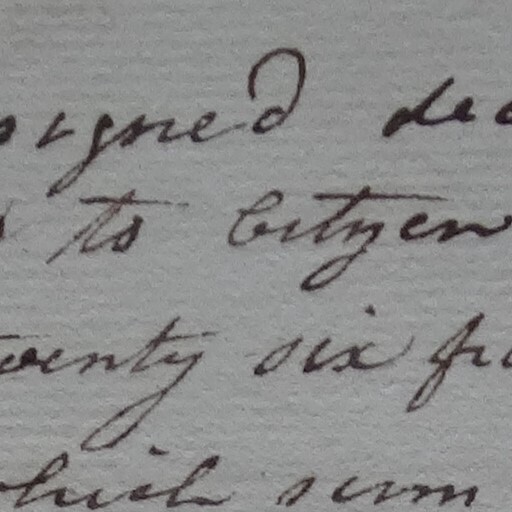 signed dec
to Citizen
twenty six fr
which sum